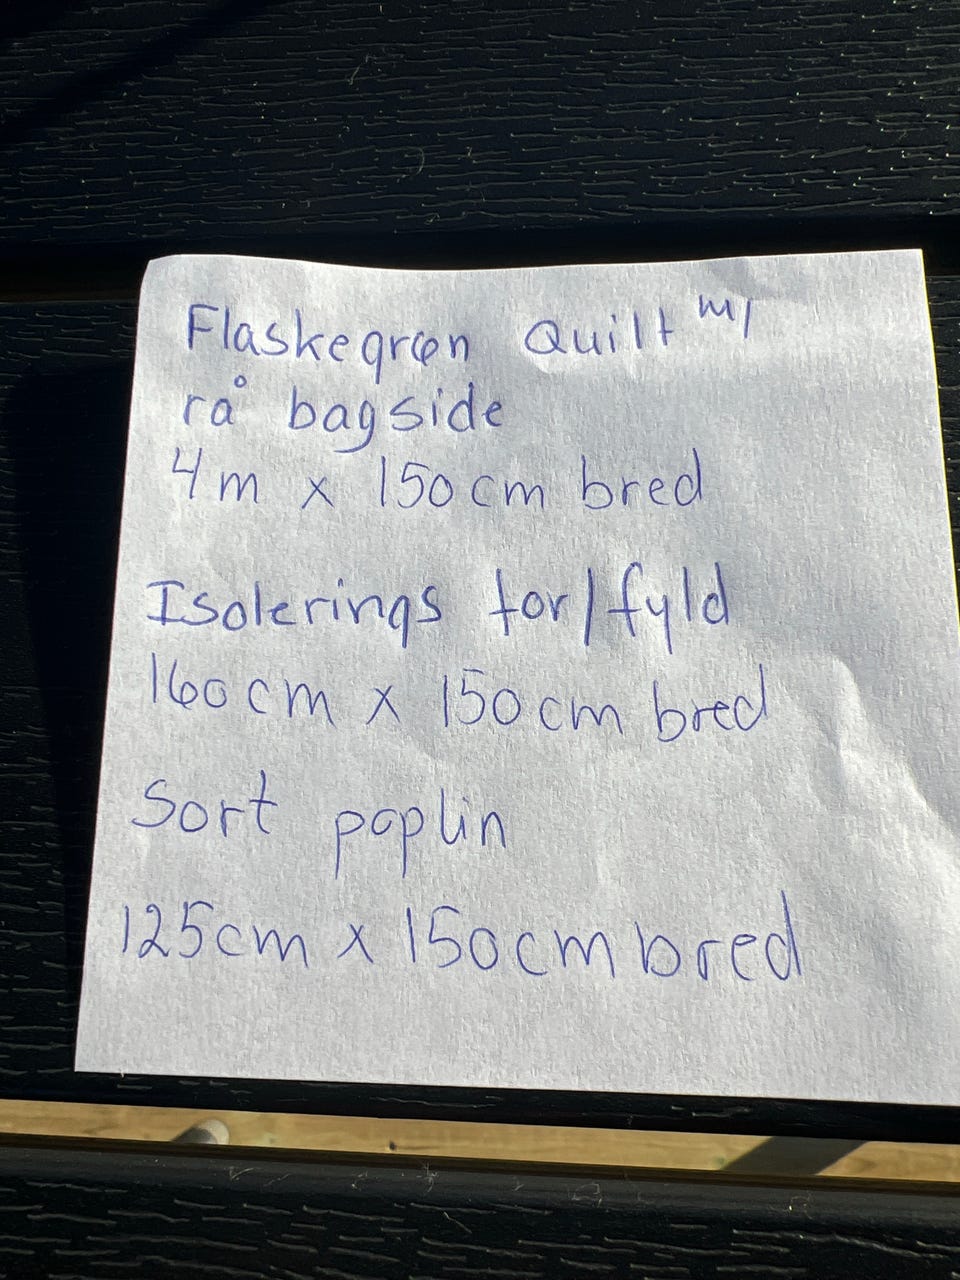 Flaskegrøn Quilt m/
rå bagside
4m x 150cm bred
Isolerings for/fyld
160cm x 150cm bred
Sort poplin
125cm x 150cm bred